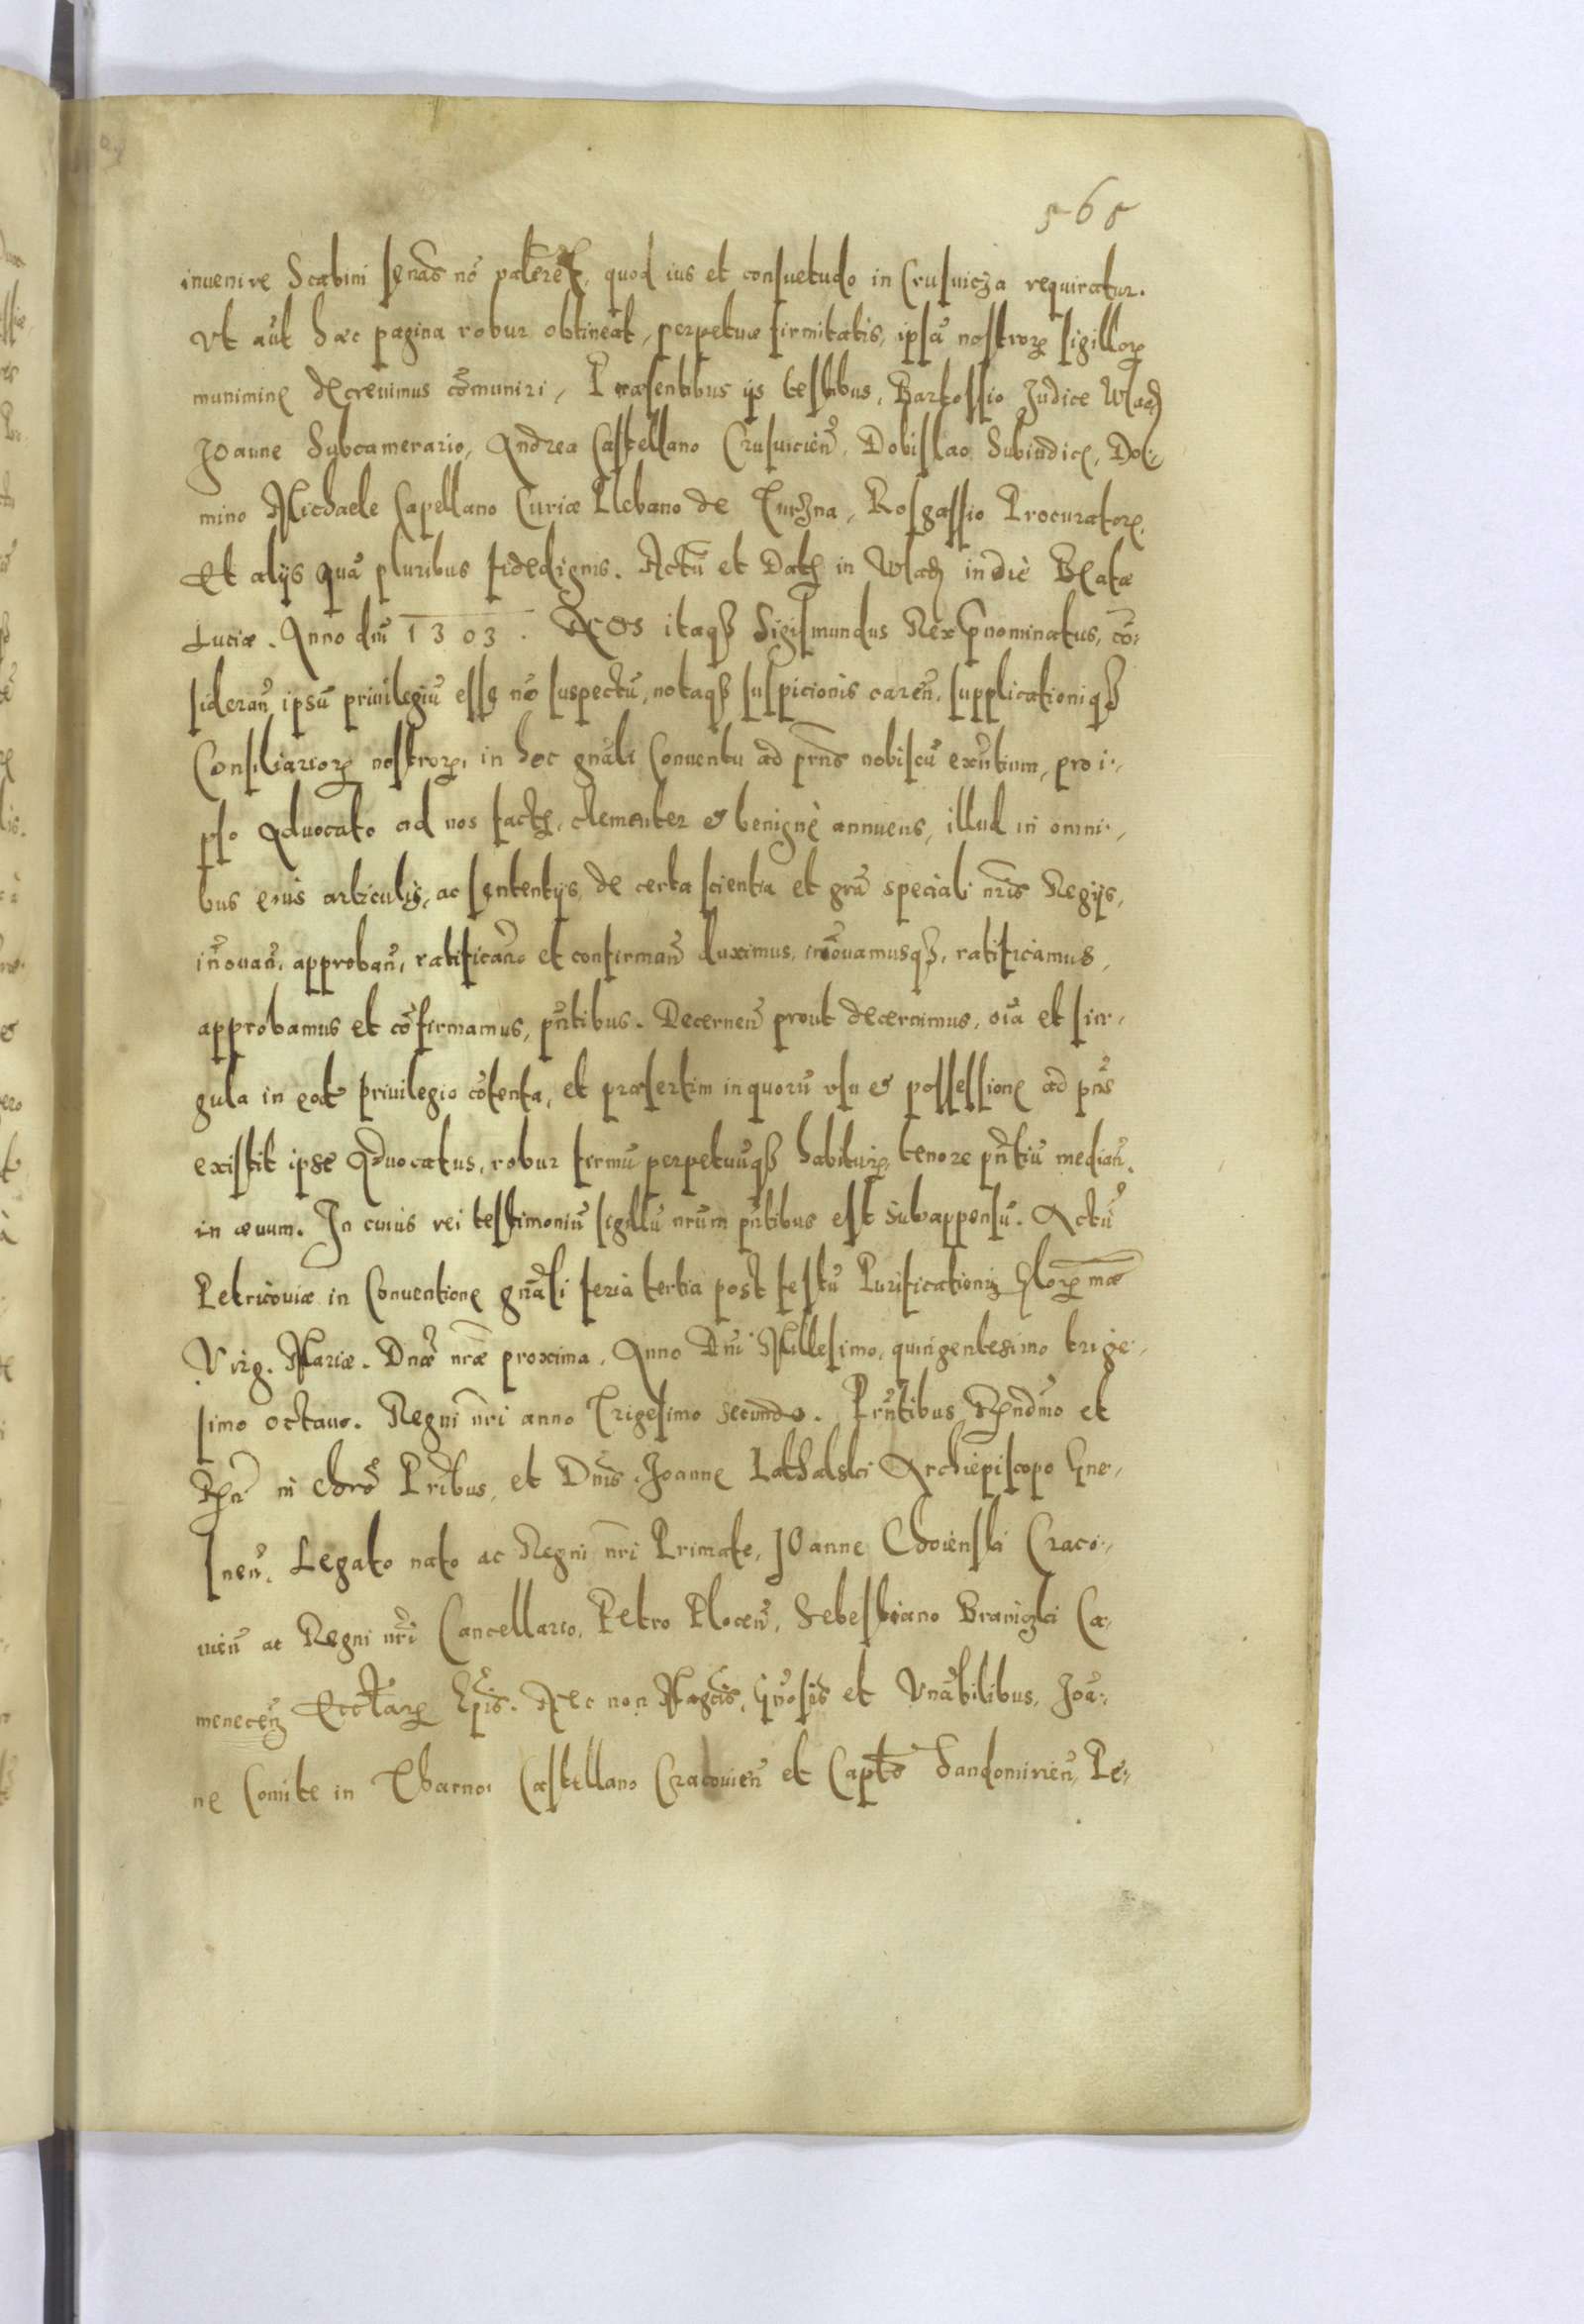 565
invenire Scabini senãs nõ paterẽt, quod ius et consuetudo in Crusvicza requiratur.
Vt aũt hæc pagina robur obtineat, perpetuæ firmitatis, ipsã nostrorꝫ sigillorꝫ
munimine decreuimus cõmuniri, Præsentibus ijs testibus, Bartossio Judice Wlad
Joanne Subcamerario, Andrea Castellano Crusuicieñ, Dobislao Subiudice, Do-
mino Michaele Capellano Curiæ Plebano de Turzna, Rosgassio Procuratore,
Et alijs quã pluribus fidedignis. Actũ et Datꝫ in Wlad in die Beatæ
Luciæ. Anno dni 1303. NOS itaqꝫ Sigismundus Rex pnominatus, cõ-
siderañ ipsũ priuilegiũ esse nõ suspectũ, notaqꝫ suspicionis careñ, supplicationiqꝫ
Consiliariorꝫ nostrorꝫ, in hoc gnãli Conuentu ad prñs nobiscũ exñtium, pro i-
pso Aduocato ad nos factꝫ, clementer et benignè annuens, illud in omni-
bus eius articulis, ac sententijs, de certa scientia et grã speciali nrĩs Regijs,
iñouañ, approbañ, ratificañ et confirmañ duximus, iñouamusqꝫ, ratificamus,
approbamus et cõfirmamus, pñtibus. Decerneñ prout decernimus, oĩa et sin-
gula in eodẽ priuilegio cõtenta, et præsertim in quorũ vsu et possessione ad pñs
existit ipse Aduocatus, robur firmũ perpetuũqꝫ habiturꝫ, tenore pñtiũ mediañ.
in æuum. In cuius rei testimoniũ sigillũ nrũm pñtibus est subappensũ. Actũ
Petricouiæ in Conuentione gnãli feria tertia post festũ Purificationis Glorꝫmæ
Virg. Mariæ. Dnæ nræ proxima. Anno Dni Millesimo, quingentesimo trige-
simo octauo. Regni nri anno Trigesimo secundo. Prñtibus Rñdmo et
Rñ in Chrõ Prĩbus, et Dnis. Joanne Lathalski Archiepiscopo Gne-
sneñ. Legato nato ac Regni nri Primate, Joanne Choienski Craco-
uieñ ac Regni nri Cancellario, Petro Ploceñ, Sebestiano Braniczki Ca-
meneceñ Ecclarꝫ Epis. Nec non Magcis, Gñosis et Vnãbilibus, Joã-
ne Comite in Tharnow Castellano Cracouieñ et Captõ Sandomirieñ, Pe-